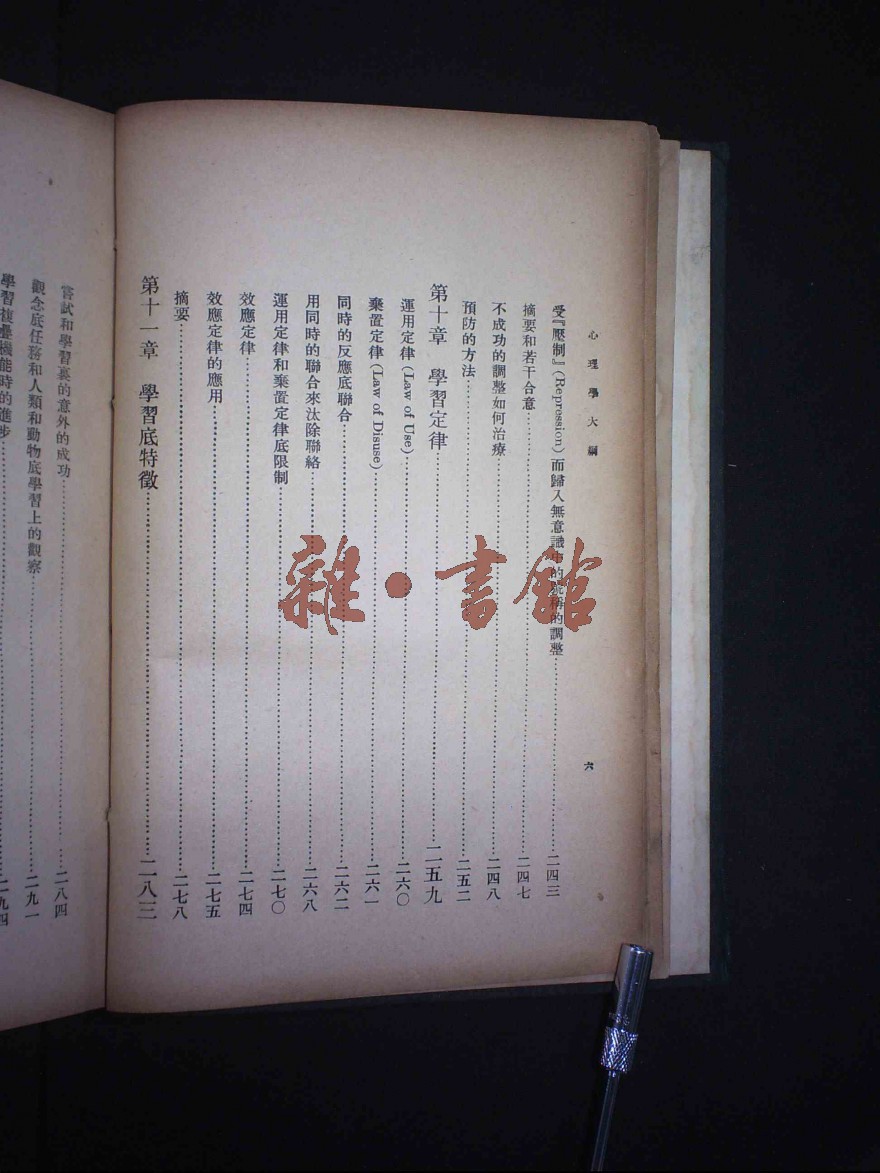 心理學大綱
六
受『壓制』(Repression) 而歸入無意識中的 的調整……二四三
摘要和若干合意……二四七
不成功的調整如何治療……二四八
預防的方法……二五二
第十章　學習定律……二五九
運用定律 (Law of Use)……二六〇
棄置定律 (Law of Disuse)……二六一
同時的反應底聯合……二六二
用同時的聯合來汰除聯絡……二六八
運用定律和棄置定律底限制……二七〇
效應定律……二七四
效應定律的應用……二七五
摘要……二七八
第十一章　學習底特徵……二八三
嘗試和學習裏的意外的成功……二八四
觀念底任務和人類和動物底學習上的觀察……二九一
學習複疊機能時的進步……二九四
雜·書館